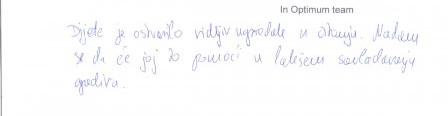 In Optimum team
Dijete je ostvarilo vidljiv napredak u čitanju. Nadam
se da će joj to pomoći u lakšem savladavanju
gradiva.